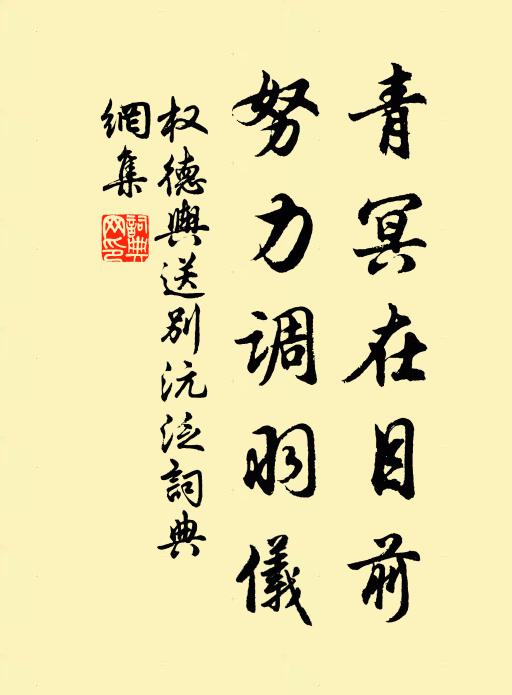 青冥在目前
努力调羽儀
权德輿送别沅泛詞典
網集
詞典
网印